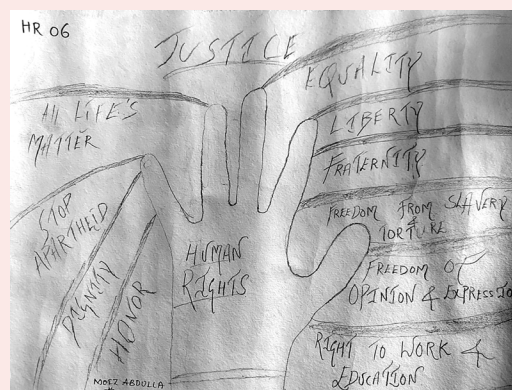 HR 06
JUSTICE
EQUALITY
LIBERTY
FRATERNITY
FREEDOM FROM SLAVERY
& TORTURE
FREEDOM OF
OPINION & EXPRESSIO
RIGHT TO WORK &
EDUCATION
All LIFE'S
MATTER
STOP
APARTHEID
DIGNITY
HONOR
HUMAN
RIGHTS
MOEZ ABDULLA